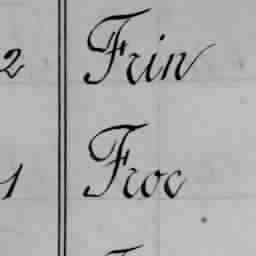 2 Frin
1 Froc